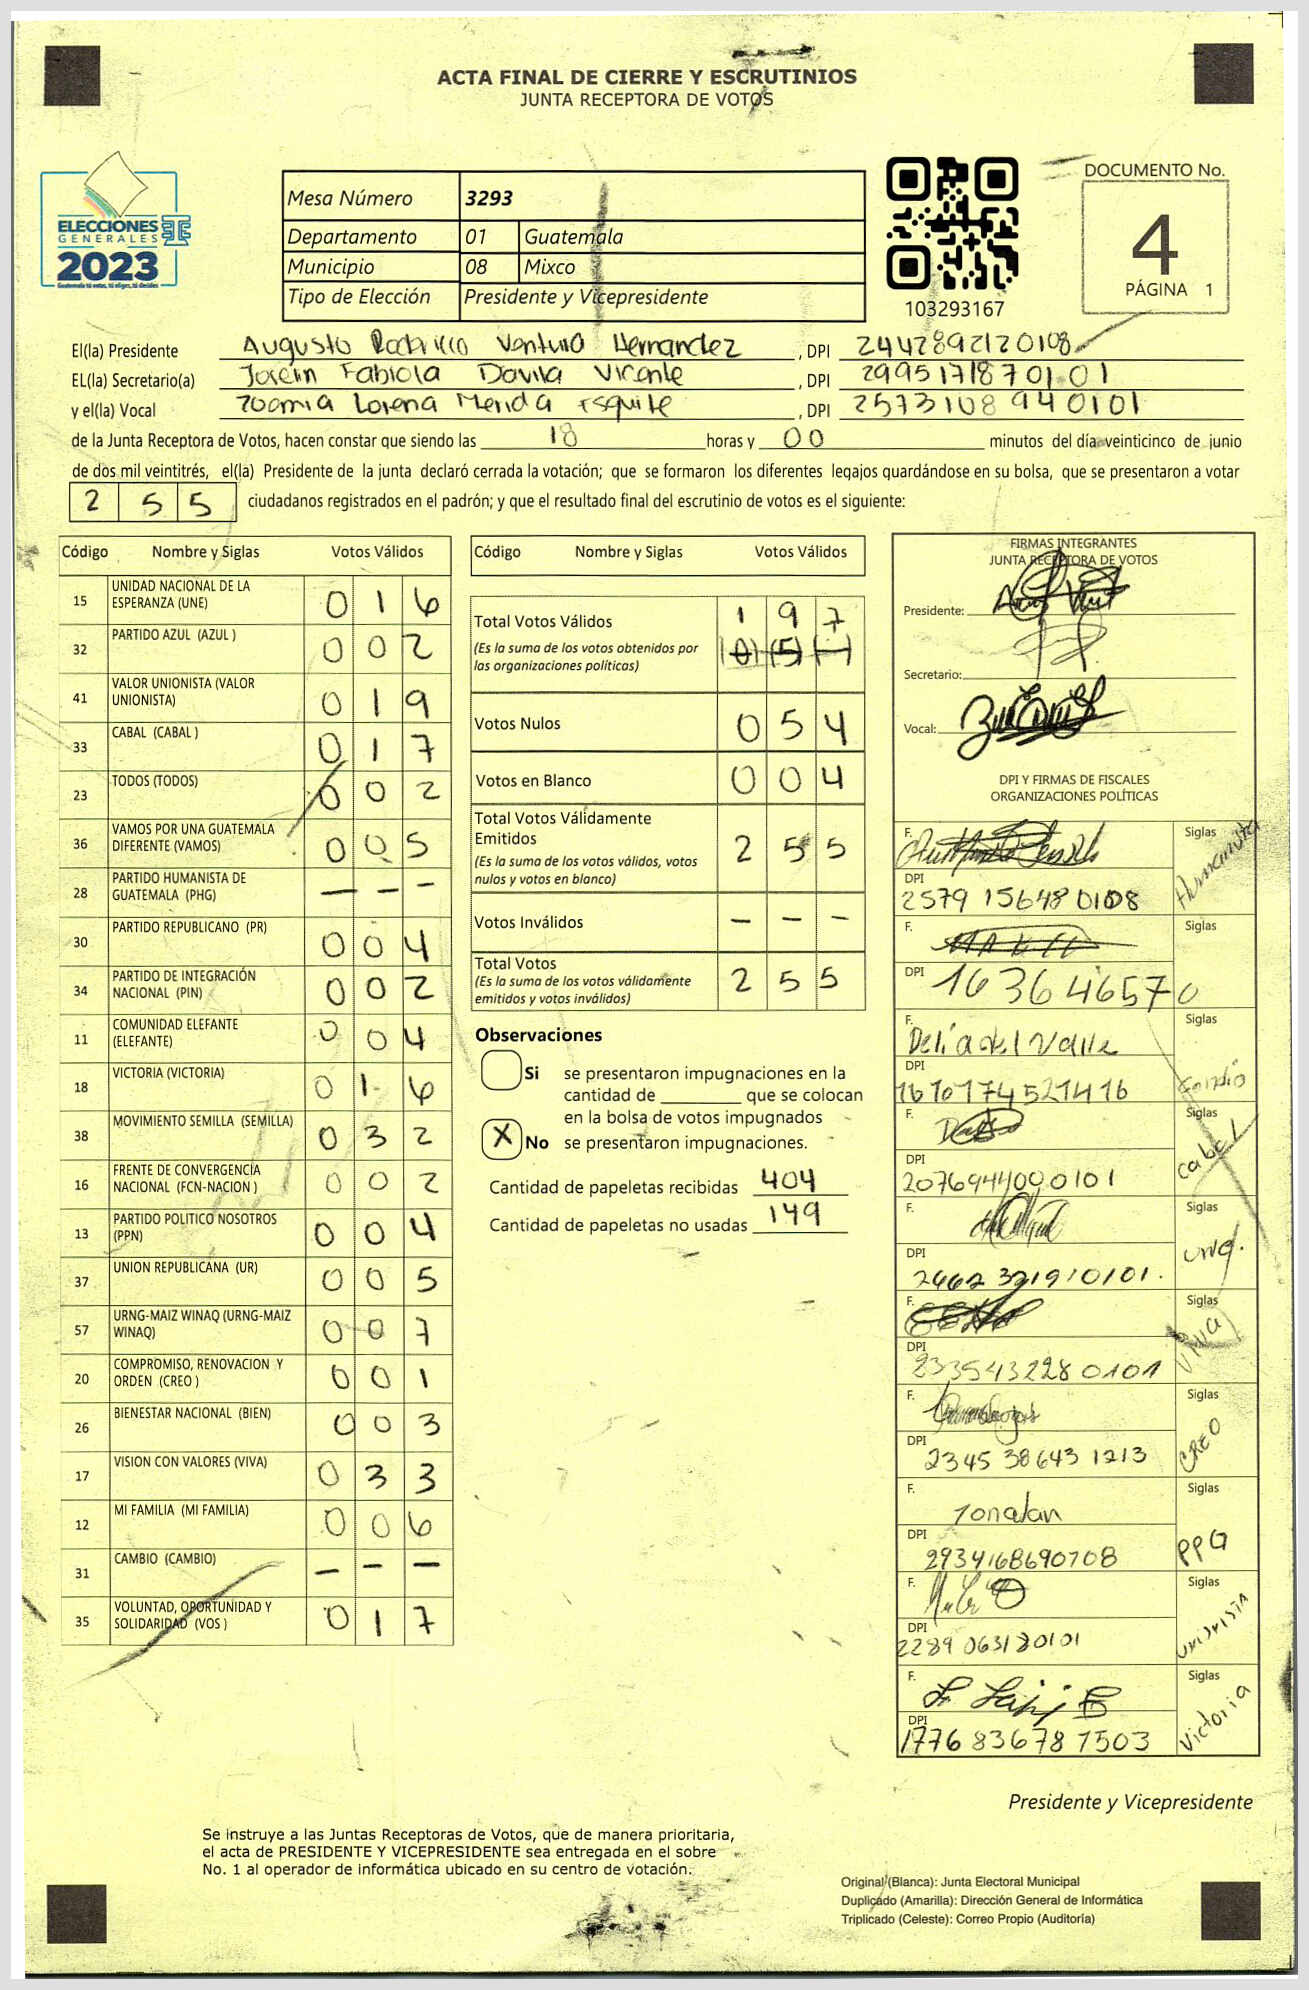 ACTA FINAL DE CIERRE Y ESCRUTINIOS
JUNTA RECEPTORA DE VOTOS
ELECCIONES
GENERALES
2023
Guatemala tú votas, tú eliges, tú decides
Mesa Número 3293
Departamento 01 Guatemala
Municipio 08 Mixco
Tipo de Elección Presidente y Vicepresidente
103293167
DOCUMENTO No.
4
PÁGINA 1
El(la) Presidente Augusto Rodrigo Ventura Hernandez, DPI 2442892120108
EL(la) Secretario(a) Joselin Fabiola Davila Vicente, DPI 2995171870101
y el(la) Vocal Lorena Merida Esquite, DPI 2573108940101
de la Junta Receptora de Votos, hacen constar que siendo las 18 horas y 00 minutos del día veinticinco de junio
de dos mil veintitrés, el(la) Presidente de la junta declaró cerrada la votación; que se formaron los diferentes legajos guardándose en su bolsa, que se presentaron a votar
255 ciudadanos registrados en el padrón; y que el resultado final del escrutinio de votos es el siguiente:
Código Nombre y Siglas Votos Válidos
15 UNIDAD NACIONAL DE LA ESPERANZA (UNE) 016
32 PARTIDO AZUL (AZUL ) 002
41 VALOR UNIONISTA (VALOR UNIONISTA) 019
33 CABAL (CABAL ) 017
23 TODOS (TODOS) 002
36 VAMOS POR UNA GUATEMALA DIFERENTE (VAMOS) 005
28 PARTIDO HUMANISTA DE GUATEMALA (PHG) – – –
30 PARTIDO REPUBLICANO (PR) 004
34 PARTIDO DE INTEGRACIÓN NACIONAL (PIN) 002
11 COMUNIDAD ELEFANTE (ELEFANTE) 004
18 VICTORIA (VICTORIA) 016
38 MOVIMIENTO SEMILLA (SEMILLA) 032
16 FRENTE DE CONVERGENCIA NACIONAL (FCN-NACION ) 002
13 PARTIDO POLITICO NOSOTROS (PPN) 004
37 UNION REPUBLICANA (UR) 005
57 URNG-MAIZ WINAQ (URNG-MAIZ WINAQ) 007
20 COMPROMISO, RENOVACION Y ORDEN (CREO ) 001
26 BIENESTAR NACIONAL (BIEN) 003
17 VISION CON VALORES (VIVA) 033
12 MI FAMILIA (MI FAMILIA) 006
31 CAMBIO (CAMBIO) – – –
35 VOLUNTAD, OPORTUNIDAD Y SOLIDARIDAD (VOS ) 017
Código Nombre y Siglas Votos Válidos
Total Votos Válidos 197
(Es la suma de los votos obtenidos por
las organizaciones políticas)
Votos Nulos 054
Votos en Blanco 004
Total Votos Válidamente
Emitidos 255
(Es la suma de los votos válidos, votos
nulos y votos en blanco)
Votos Inválidos – – –
Total Votos 255
(Es la suma de los votos válidamente
emitidos y votos inválidos)
Observaciones
Si se presentaron impugnaciones en la
cantidad de ________ que se colocan
en la bolsa de votos impugnados
X No se presentaron impugnaciones.
Cantidad de papeletas recibidas 404
Cantidad de papeletas no usadas 149
FIRMAS INTEGRANTES
JUNTA RECEPTORA DE VOTOS
Presidente:
Secretario:
Vocal:
DPI Y FIRMAS DE FISCALES
ORGANIZACIONES POLÍTICAS
F. Siglas Humanista
DPI 2579 15648 0108
F. Siglas
DPI 1636 46570
F. Delia del Valle Siglas
DPI 1610174521416
F. Siglas Cabal
DPI 2076944000101
F. Siglas
DPI 2462 321910101.
F. Siglas Viva
DPI 2335432280101
F. Siglas CREO
DPI 2345 38643 1213
F. Jonatan Siglas PPG
DPI 2934168690708
F. Siglas Unionista
DPI 2289 063180101
F. Siglas Victoria
DPI 1776 83678 1503
Presidente y Vicepresidente
Se instruye a las Juntas Receptoras de Votos, que de manera prioritaria,
el acta de PRESIDENTE Y VICEPRESIDENTE sea entregada en el sobre
No. 1 al operador de informática ubicado en su centro de votación.
Original (Blanca): Junta Electoral Municipal
Duplicado (Amarilla): Dirección General de Informática
Triplicado (Celeste): Correo Propio (Auditoría)